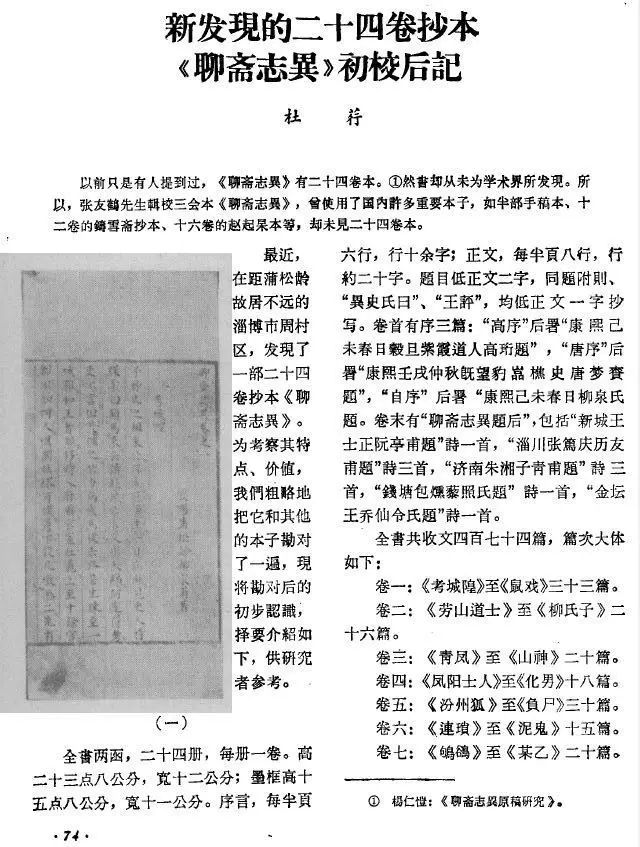 新发現的二十四卷抄本
《聊斋志異》初校后記
杜荇
以前只是有人提到过，《聊斋志異》有二十四卷本。①然書却从未为学术界所发現。所
以，张友鶴先生輯校三会本《聊斋志異》，曾使用了国内許多重要本子，如半部手稿本、十
二卷的鑄雪斋抄本、十六卷的赵起杲本等，却未見二十四卷本。
最近，
在距蒲松齡
故居不远的
淄博市周村
区，发現了
一部二十四
卷抄本《聊
斋志異》。
为考察其特
点、价值，
我們粗略地
把它和其他
的本子勘对
了一遍，現
将勘对后的
初步認識，
择要介紹如
下，供研究
者参考。
（一）
全書两函，二十四册，每册一卷。高
二十三点八公分，寬十二公分；墨框高十
五点八公分，寬十一公分。序言，每半頁
六行，行十余字；正文，每半頁八行，行
約二十字。題目低正文二字，同題附則、
“異史氏曰”、“王評”，均低正文一字抄
写。卷首有序三篇：“高序”后署“康熙己
未春日穀旦紫霞道人高珩題”，“唐序”后
署“康熙壬戌仲秋旣望豹嵓樵史唐梦賚
題”，“自序”后署“康熙己未春日柳泉氏
題。卷末有“聊斋志異題后”，包括“新城王
士正阮亭甫題”詩一首，“淄川张篤庆历友
甫題”詩三首，“济南朱湘子青甫題”詩三
首，“錢塘包燻藜照氏題”詩一首，“金坛
王乔仙令氏題”詩一首。
全書共收文四百七十四篇，篇次大体
如下：
卷一：《考城隍》至《鼠戏》三十三篇。
卷二：《劳山道士》至《柳氏子》二
十六篇。
卷三：《青凤》至《山神》二十篇。
卷四：《凤阳士人》至《化男》十八篇。
卷五：《汾州狐》至《負尸》三十篇。
卷六：《連瑣》至《泥鬼》十五篇。
卷七：《鴝鵒》至《某乙》二十篇。
① 楊仁愷：《聊斋志異原稿研究》。
·74·